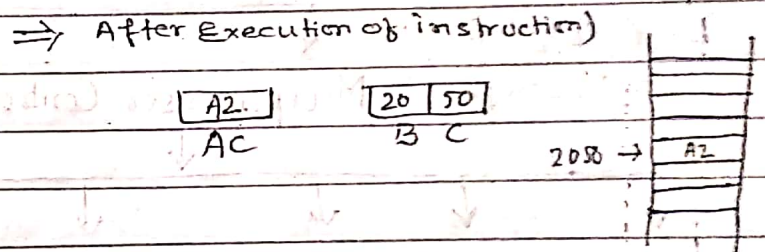 ⇒ After Execution of instruction)
A2. 20 50
AC B C
2050 → A2